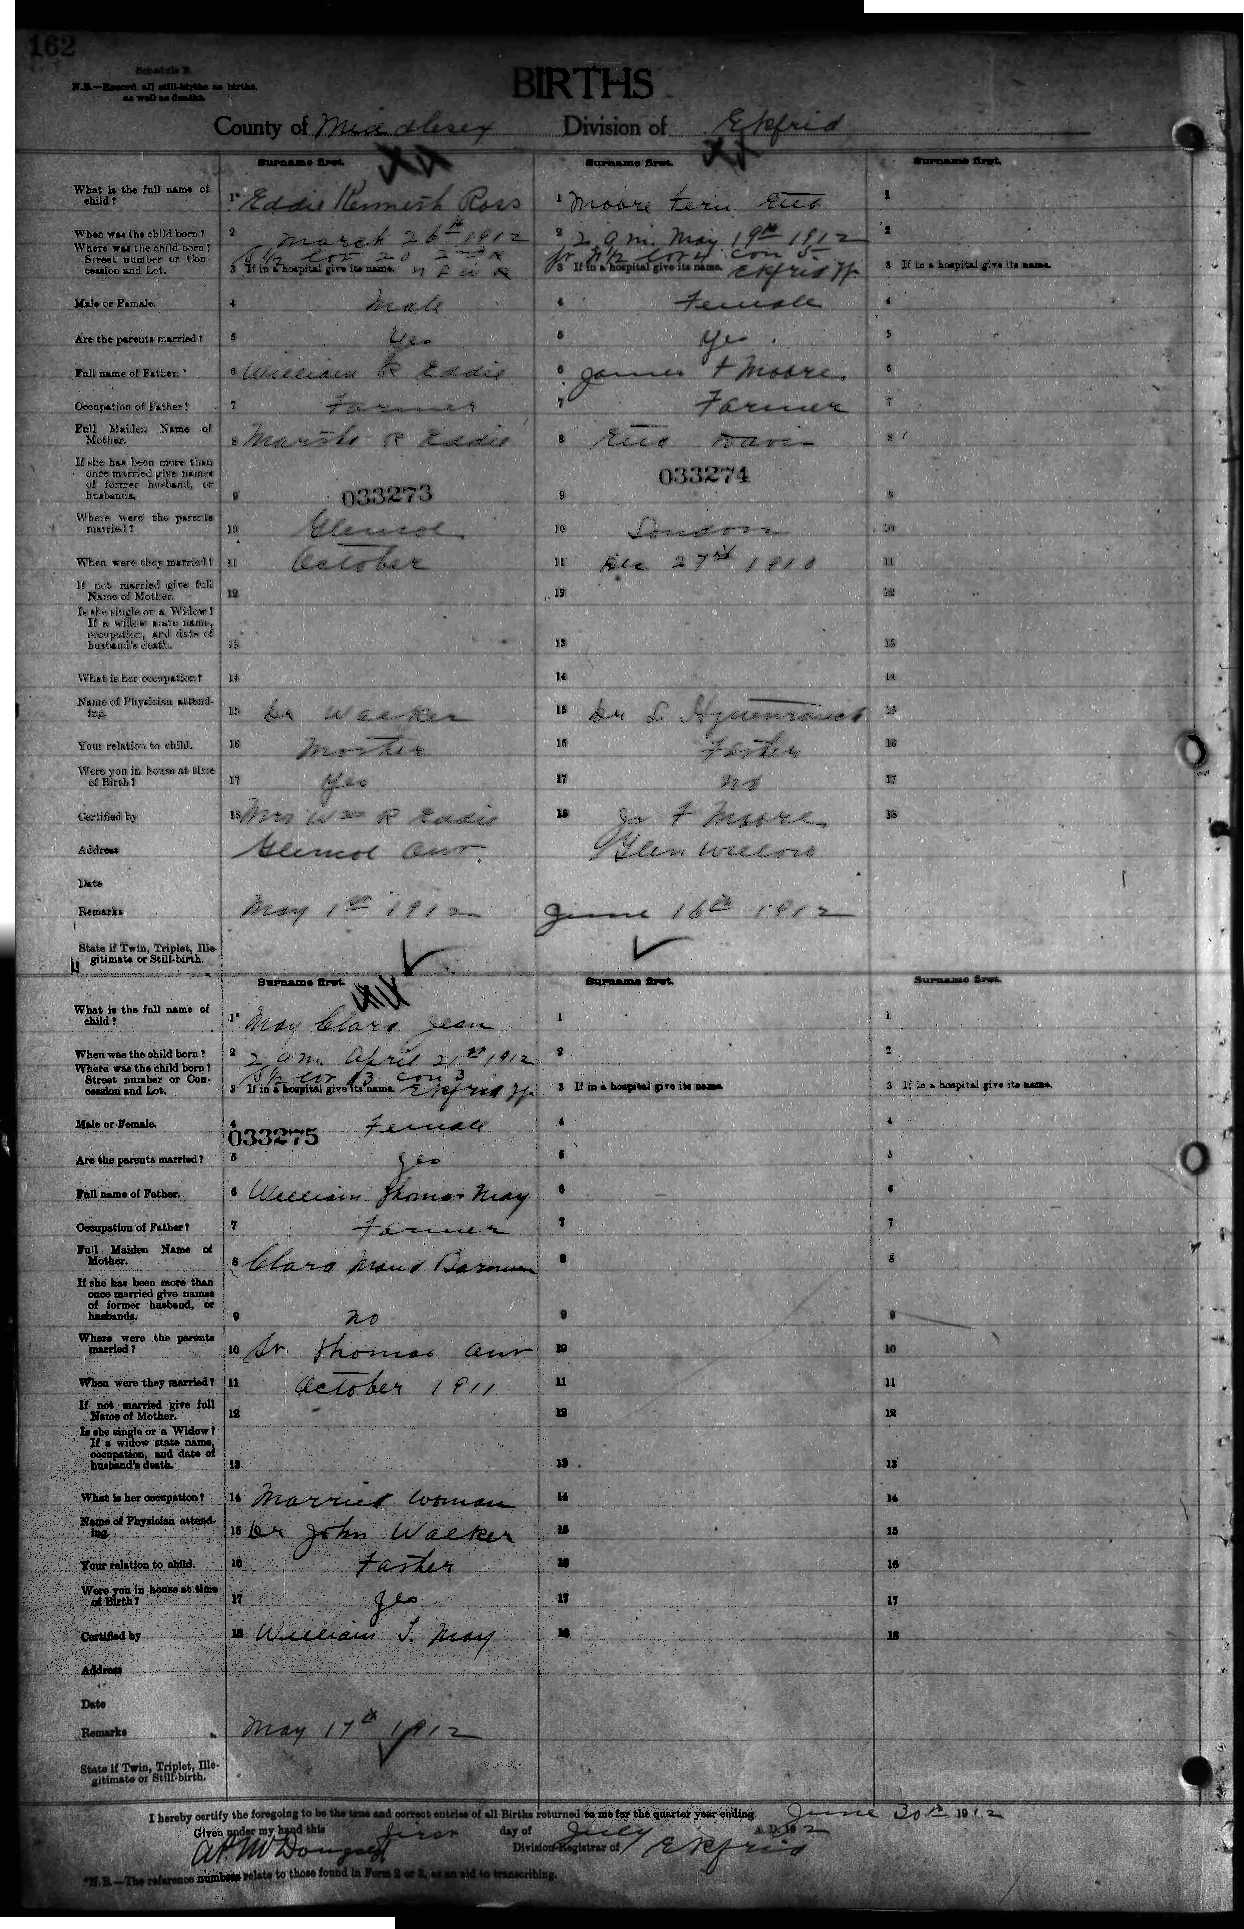 162
Schedule B.
N.B.—Record all still-births as births, as well as deaths.
BIRTHS
County of Middlesex Division of Ekfrid
Surname first. Surname first. Surname first.
What is the full name of child? 1* Eddie Kenneth Ross 1 Moore Fern Etta 1
When was the child born? 2 March 26th 1912 2 2 a m. May 19th 1912 2
Where was the child born? Street number or Concession and Lot. 3 If in a hospital give its name. S ½ Lot 20 3 If in a hospital give its name. N ½ Lot 4 Con 5 Ekfrid Tp 3 If in a hospital give its name.
Male or Female. 4 Male 4 Female 4
Are the parents married? 5 Yes 5 Yes 5
Full name of Father. 6 William R Eddie 6 James F Moore 6
Occupation of Father? 7 Farmer 7 Farmer 7
Full Maiden Name of Mother. 8 R Eddie 8 Etta Davis 8
If she has been more than once married give names of former husband, or husbands. 9 033273 9 033274 9
Where were the parents married? 10 Glencoe 10 London 10
When were they married? 11 October 11 Dec 27th 1910 11
If not married give full Name of Mother. 12 12 12
Is she single or a Widow? If a widow state name, occupation, and date of husband's death. 13 13 13
What is her occupation? 14 14 14
Name of Physician attending. 15 Dr Walker 15 Dr S. 15
Your relation to child. 16 Mother 16 Father 16
Were you in house at time of Birth? 17 Yes 17 no 17
Certified by 18 Mrs Wm R Eddie 18 Js F Moore 18
Address Glencoe Ont. Glen Willow
Date
Remarks May 1st 1912 June 16th 1912
State if Twin, Triplet, Illegitimate or Still-birth.
Surname first. Surname first. Surname first.
What is the full name of child? 1* May Clara Jean 1 1
When was the child born? 2 2 a m. April 21st 1912 2 2
Where was the child born? Street number or Concession and Lot. 3 If in a hospital give its name. S ½ Lot 13 Con 3 Ekfrid Tp 3 If in a hospital give its name. 3 If in a hospital give its name.
Male or Female. 4 Female 4 4
033275
Are the parents married? 5 Yes 5 5
Full name of Father. 6 William Thomas May 6 6
Occupation of Father? 7 Farmer 7 7
Full Maiden Name of Mother. 8 Clara Maud 8 8
If she has been more than once married give names of former husband, or husbands. 9 no 9 9
Where were the parents married? 10 St Thomas Ont 10 10
When were they married? 11 October 1911 11 11
If not married give full Name of Mother. 12 12 12
Is she single or a Widow? If a widow state name, occupation, and date of husband's death. 13 13 13
What is her occupation? 14 Married woman 14 14
Name of Physician attending. 15 Dr John Walker 15 15
Your relation to child. 16 Father 16 16
Were you in house at time of Birth? 17 Yes 17 17
Certified by 18 William T. May 18 18
Address
Date
Remarks May 17th 1912
State if Twin, Triplet, Illegitimate or Still-birth.
I hereby certify the foregoing to be the true and correct entries of all Births returned to me for the quarter year ending June 30th 1912
Given under my hand this first day of July A.D. 1912
Division-Registrar of Ekfrid
*N.B.—The reference numbers relate to those found in Form 2 or 3, as an aid to transcribing.